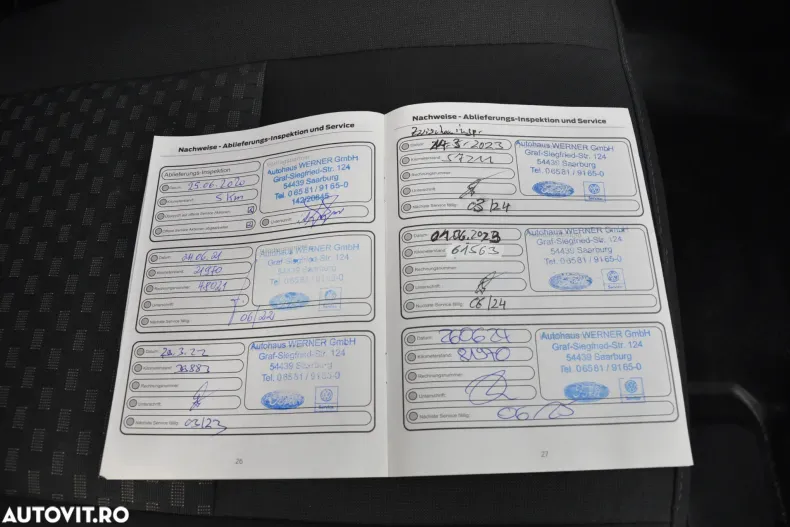 Nachweise - Ablieferungs-Inspektion und Service
Ablieferungs-Inspektion
Datum 25.06.2020
5 km
Unterschrift
Autohaus WERNER GmbH
Graf-Siegfried-Str. 124
54439 Saarburg
Tel. 0 65 81 / 91 65-0
142/20645
Datum 04.06.21
Kilometerstand 21970
Rechnungsnummer
Unterschrift
Nächster Service fällig: 06/22
Autohaus WERNER GmbH
Graf-Siegfried-Str. 124
54439 Saarburg
Tel. 0 65 81 / 91 65-0
Service
Datum
Kilometerstand
Rechnungsnummer
Unterschrift
Nächster Service fällig: 03/23
Autohaus WERNER GmbH
Graf-Siegfried-Str. 124
54439 Saarburg
Tel. 0 65 81 / 91 65-0
Service
26
Nachweise - Ablieferungs-Inspektion und Service
Datum 14-3-2023
Kilometerstand 57211
Rechnungsnummer
Unterschrift
Nächster Service fällig: 03/24
Autohaus WERNER GmbH
Graf-Siegfried-Str. 124
54439 Saarburg
Tel. 0 65 81 / 91 65-0
Service
Datum 01.06.2023
Kilometerstand 61563
Rechnungsnummer
Unterschrift
Nächster Service fällig: 06/24
Autohaus WERNER GmbH
Graf-Siegfried-Str. 124
54439 Saarburg
Tel. 0 65 81 / 91 65-0
Service
Datum 260624
Kilometerstand 81970
Rechnungsnummer
Unterschrift
Nächster Service fällig: 06/25
Autohaus WERNER GmbH
Graf-Siegfried-Str. 124
54439 Saarburg
Tel. 0 65 81 / 91 65-0
Service
27
AUTOVIT.RO